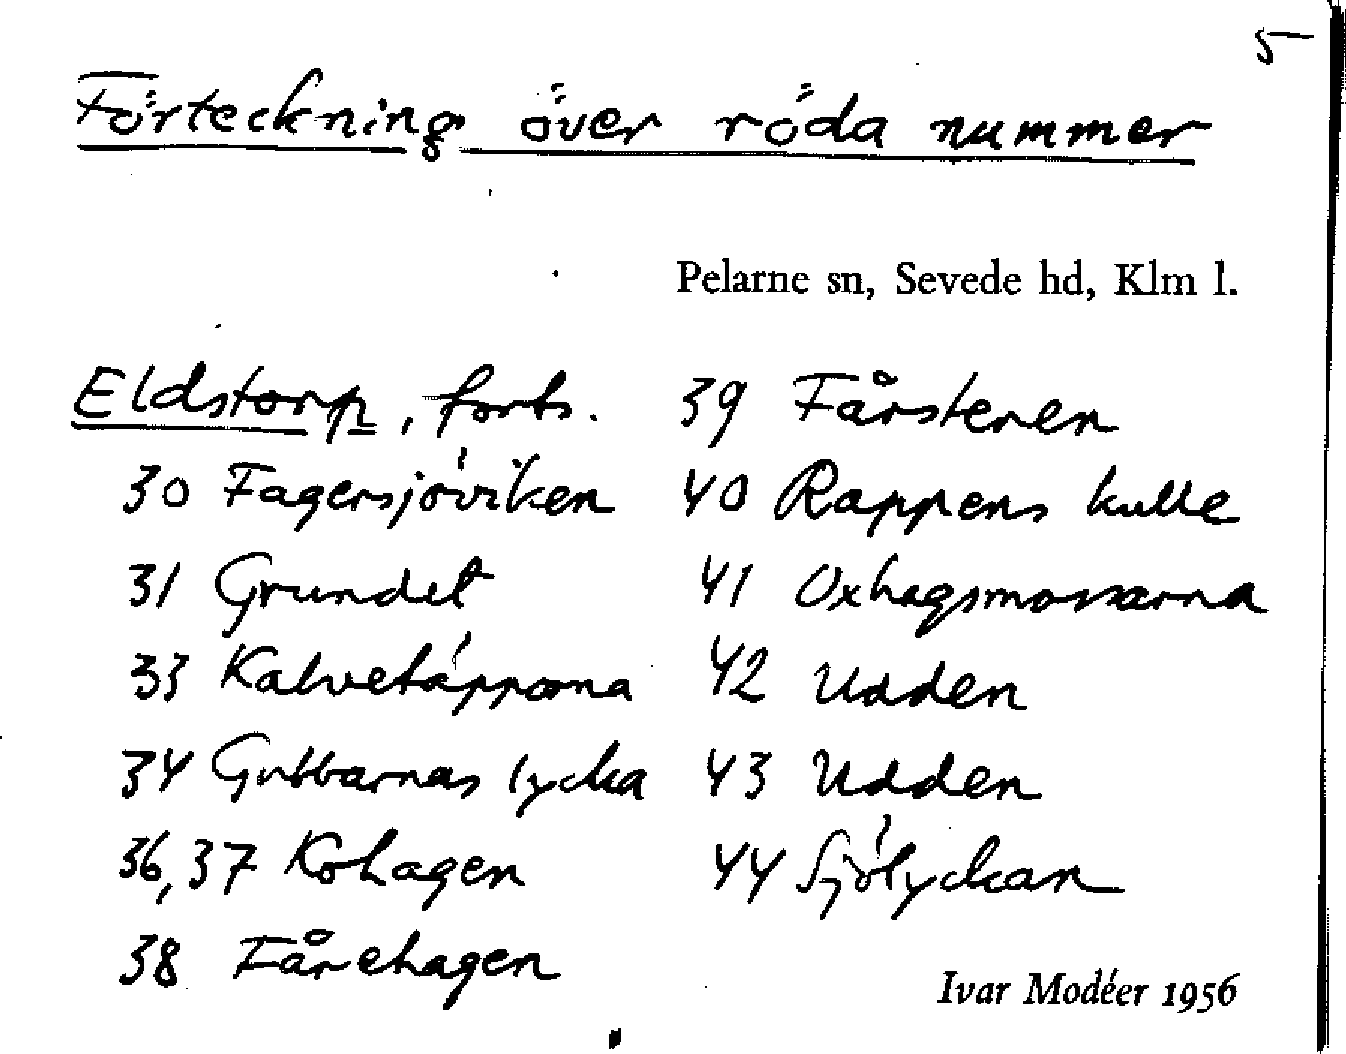 5
Förteckning över röda nummer
Pelarne sn, Sevede hd, Klm l.
Eldstorp, forts.
30 Fagersjöviken
31 Grundet
33 Kalvetäpporna
34 Gubbarnas lycka
36, 37 Kohagen
38 Fårehagen
39 Fårstenen
40 Rappens kulle
41 Oxhagsmossarna
42 Udden
43 Udden
44 Sjölyckan
Ivar Modéer 1956